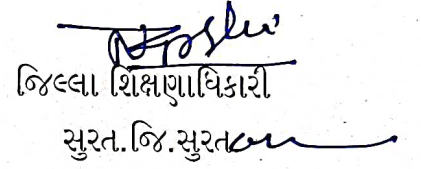 જિલ્લા શિક્ષણાધિકારી
સુરત.જિ.સુરત